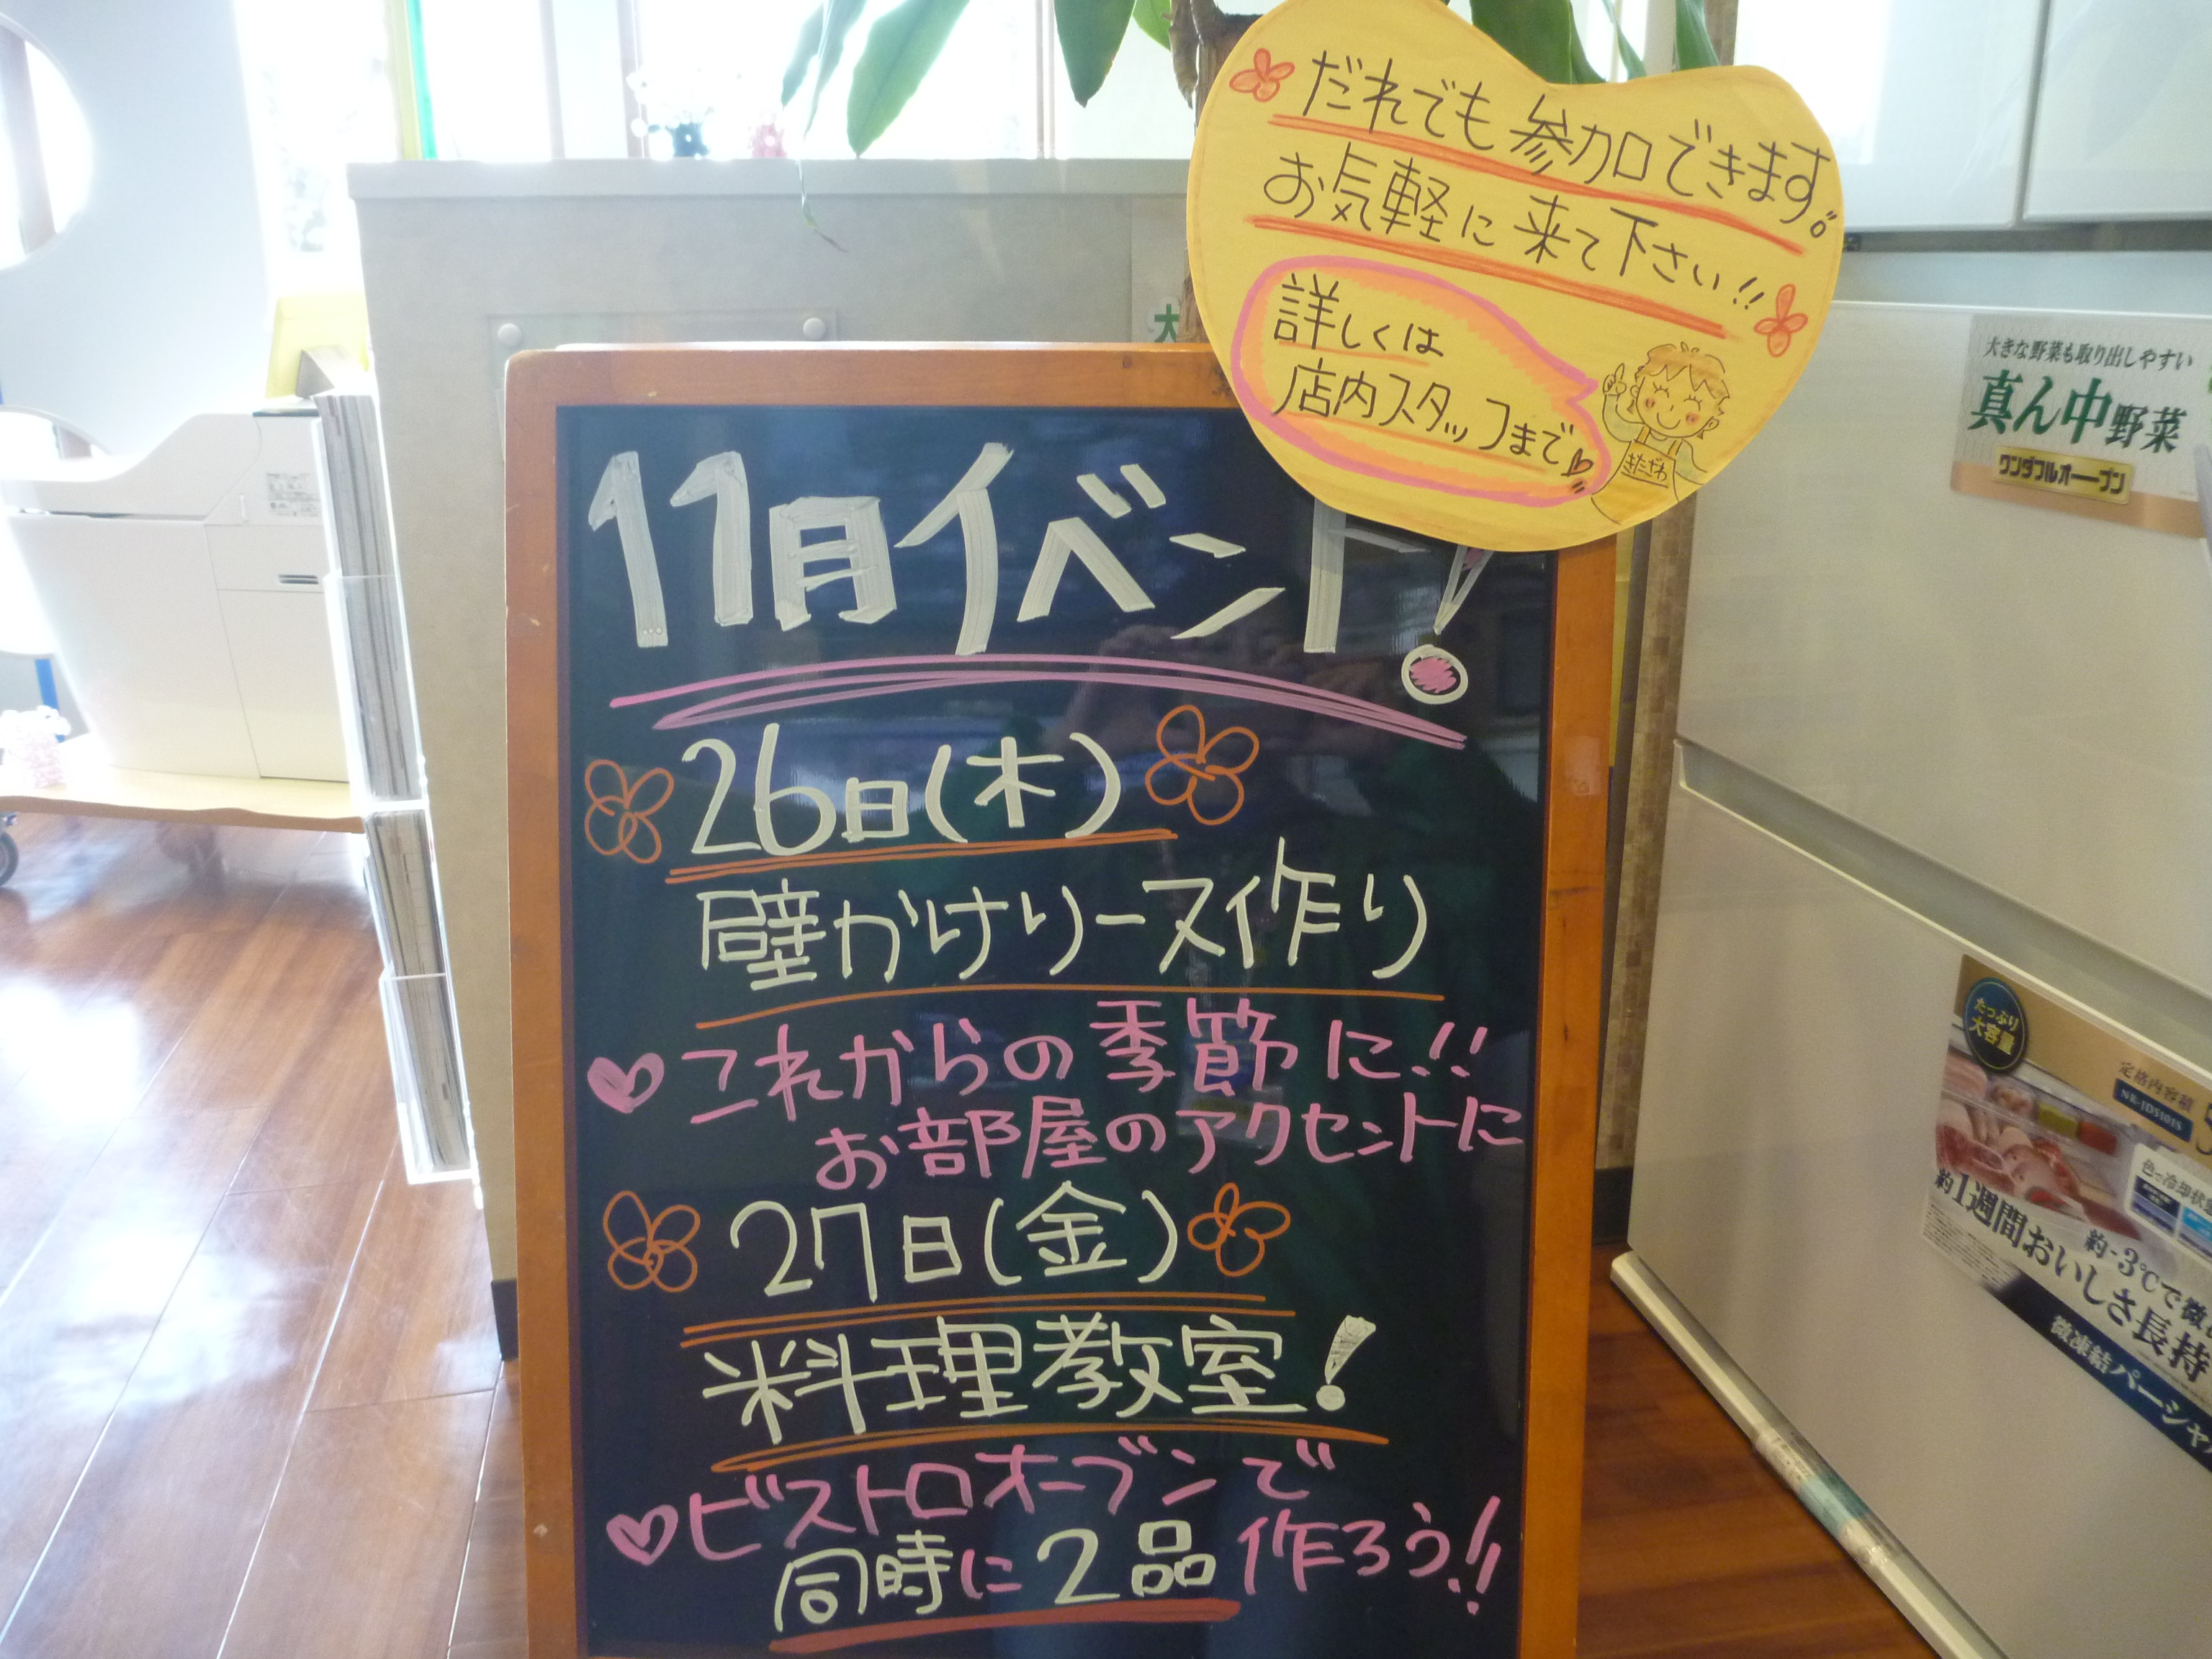 だれでも参加できます。
お気軽に来て下さい!!
詳しくは
店内スタッフまで
きたざわ
11月イベント!
26日(木)
壁かけリース作り
これからの季節に!!
お部屋のアクセントに
27日(金)
料理教室!
ビストロオーブンで
同時に2品作ろう!!
大
大きな野菜も取り出しやすい
真ん中野菜
ワンダフルオープン
たっぷり
大容量
定格内容積
NR-JD5101S
約-3℃で微
約1週間おいしさ長持
微凍結パーシャ